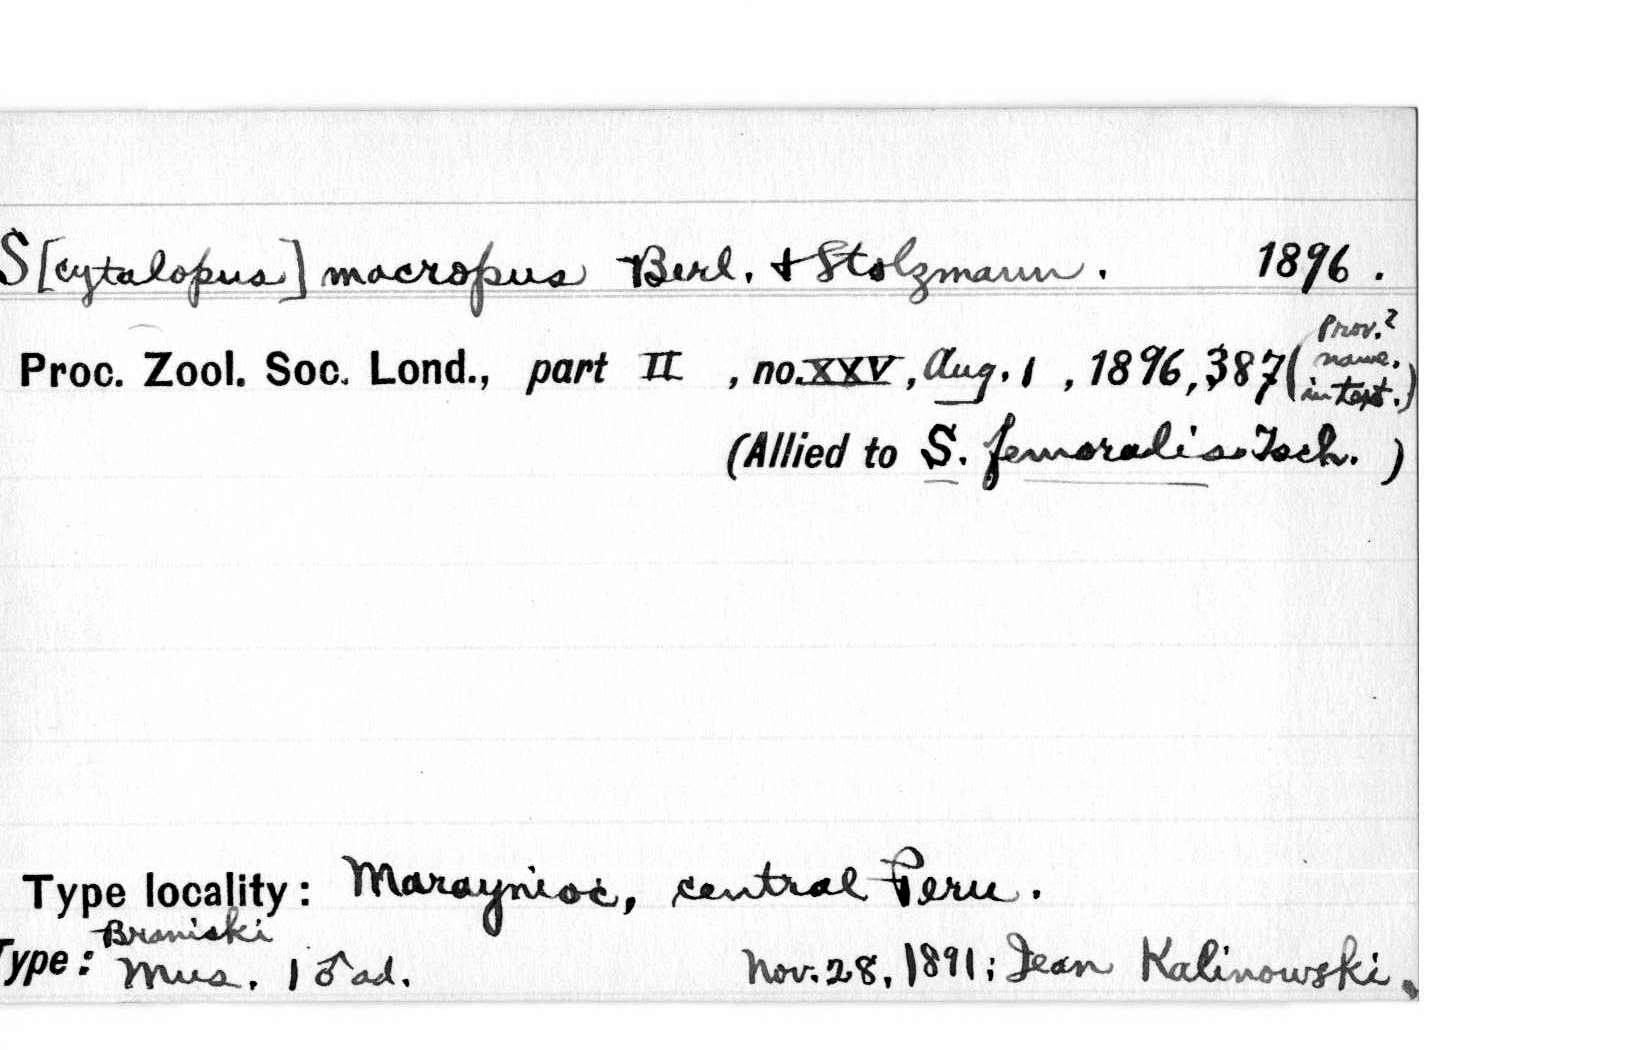 S[cytalopus] macropus Berl. & Stolzmann. 1896.
Proc. Zool. Soc. Lond., part II, no. XXV, Aug. 1, 1896, 387 (Prov.? name. in text.)
(Allied to S. femoralis Tsch.)
Type locality: Maraynioc, central Peru.
Type: Braniski Mus. 1 ♂ ad. Nov. 28, 1891; Jean Kalinowski.